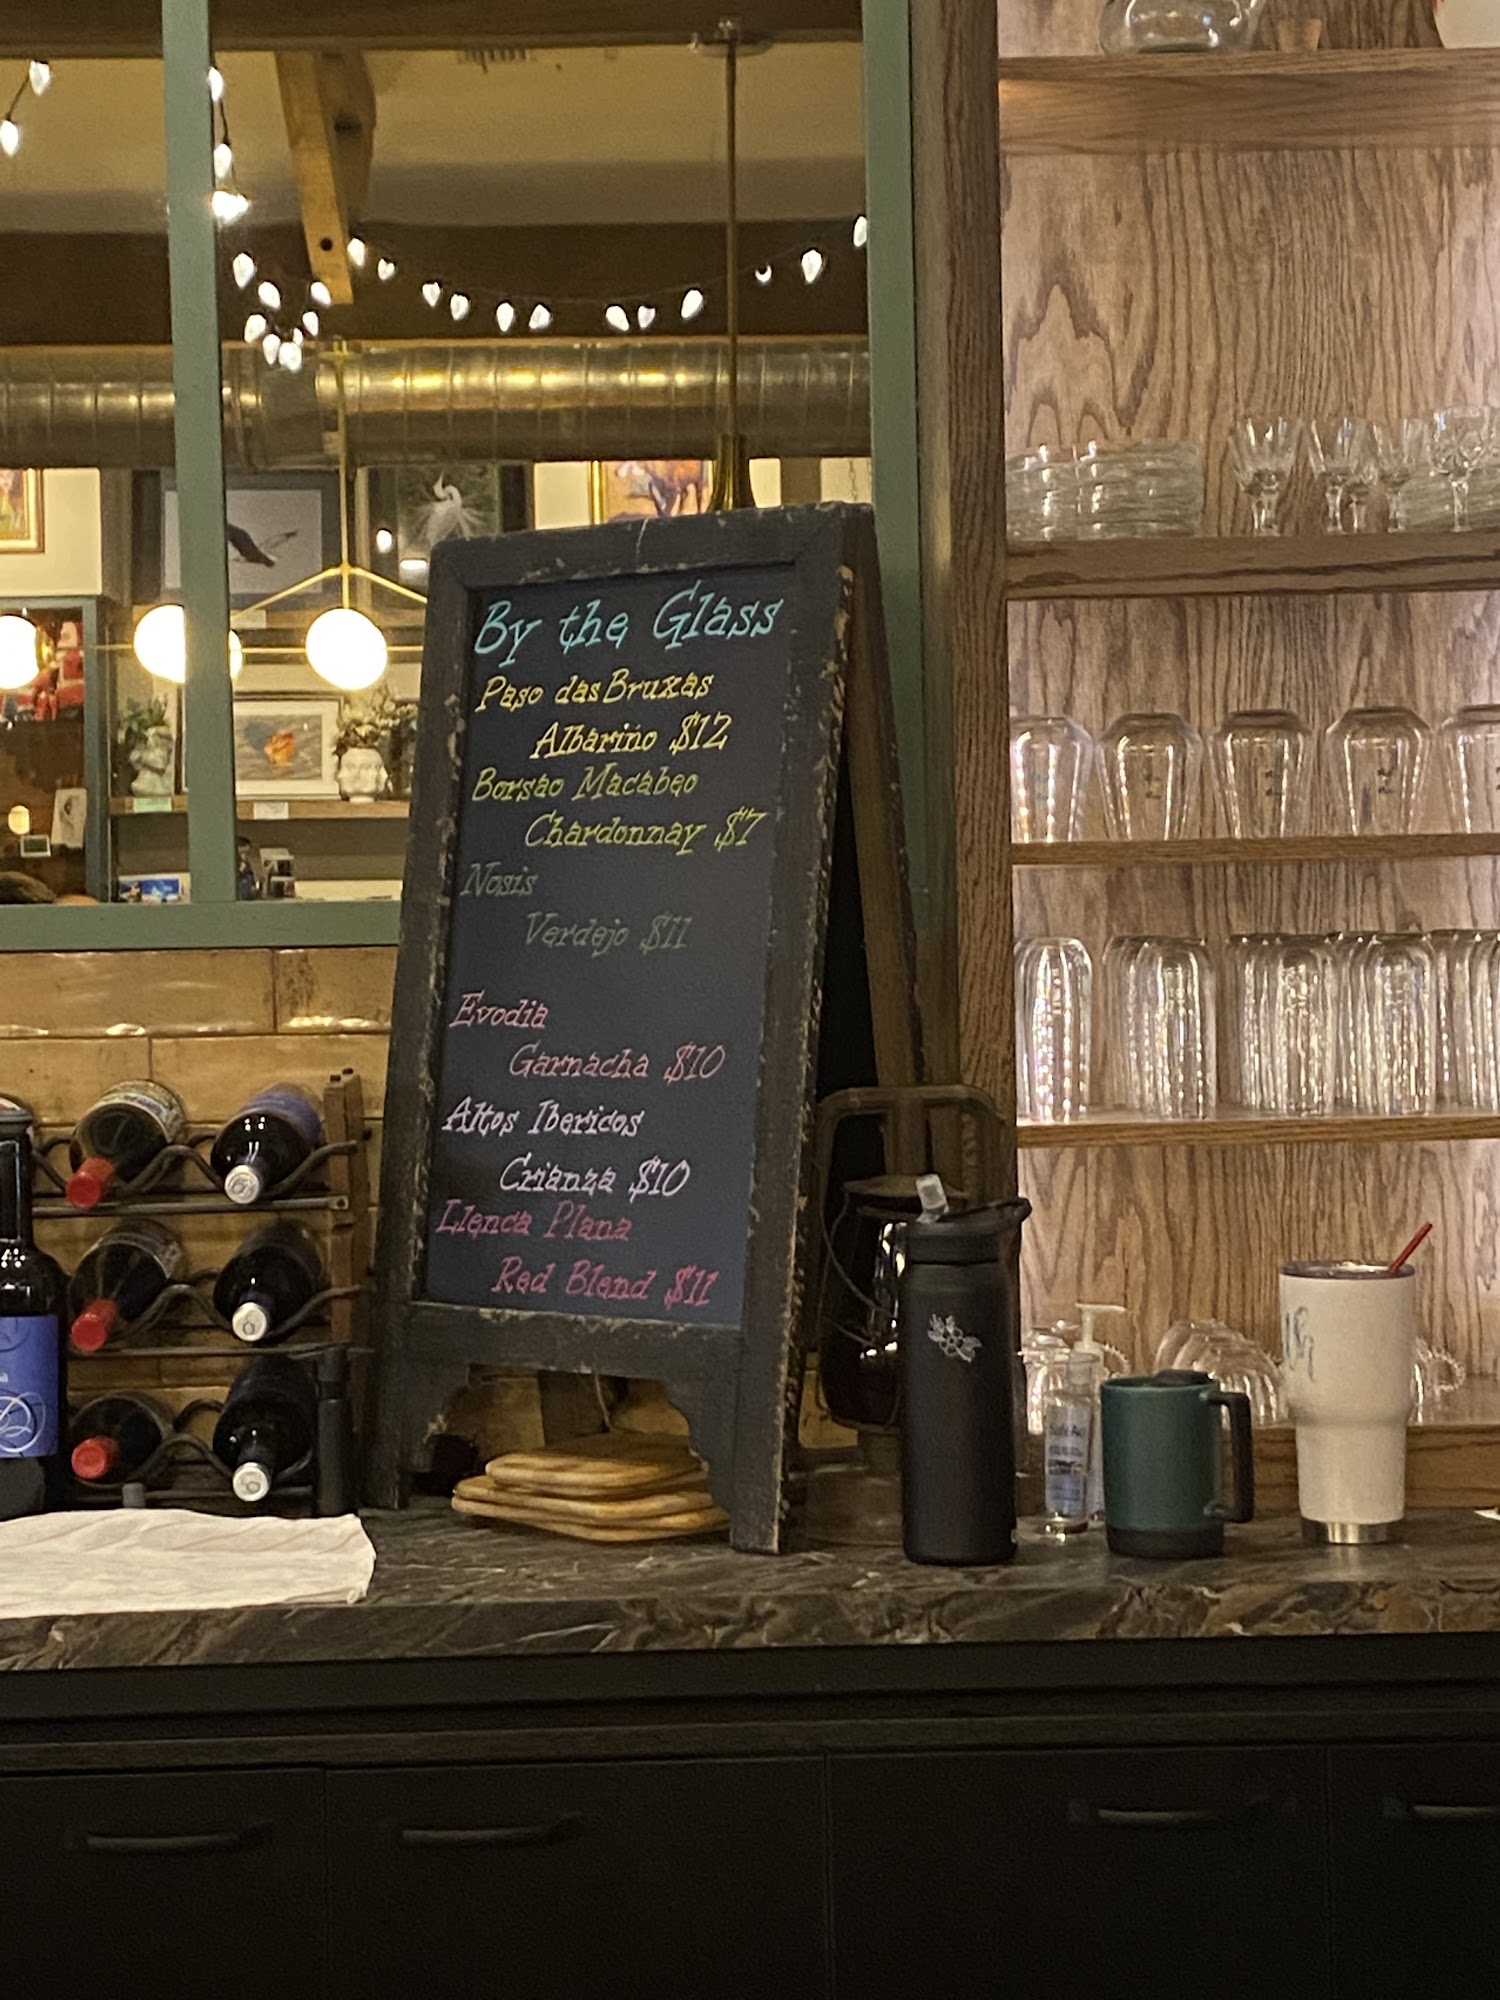 By the Glass
Paso das Bruxas
Albariño $12
Borsao Macabeo
Chardonnay $7
Nosis
Verdejo $11
Evodia
Garnacha $10
Altos Ibericos
Crianza $10
Llenca Plana
Red Blend $11